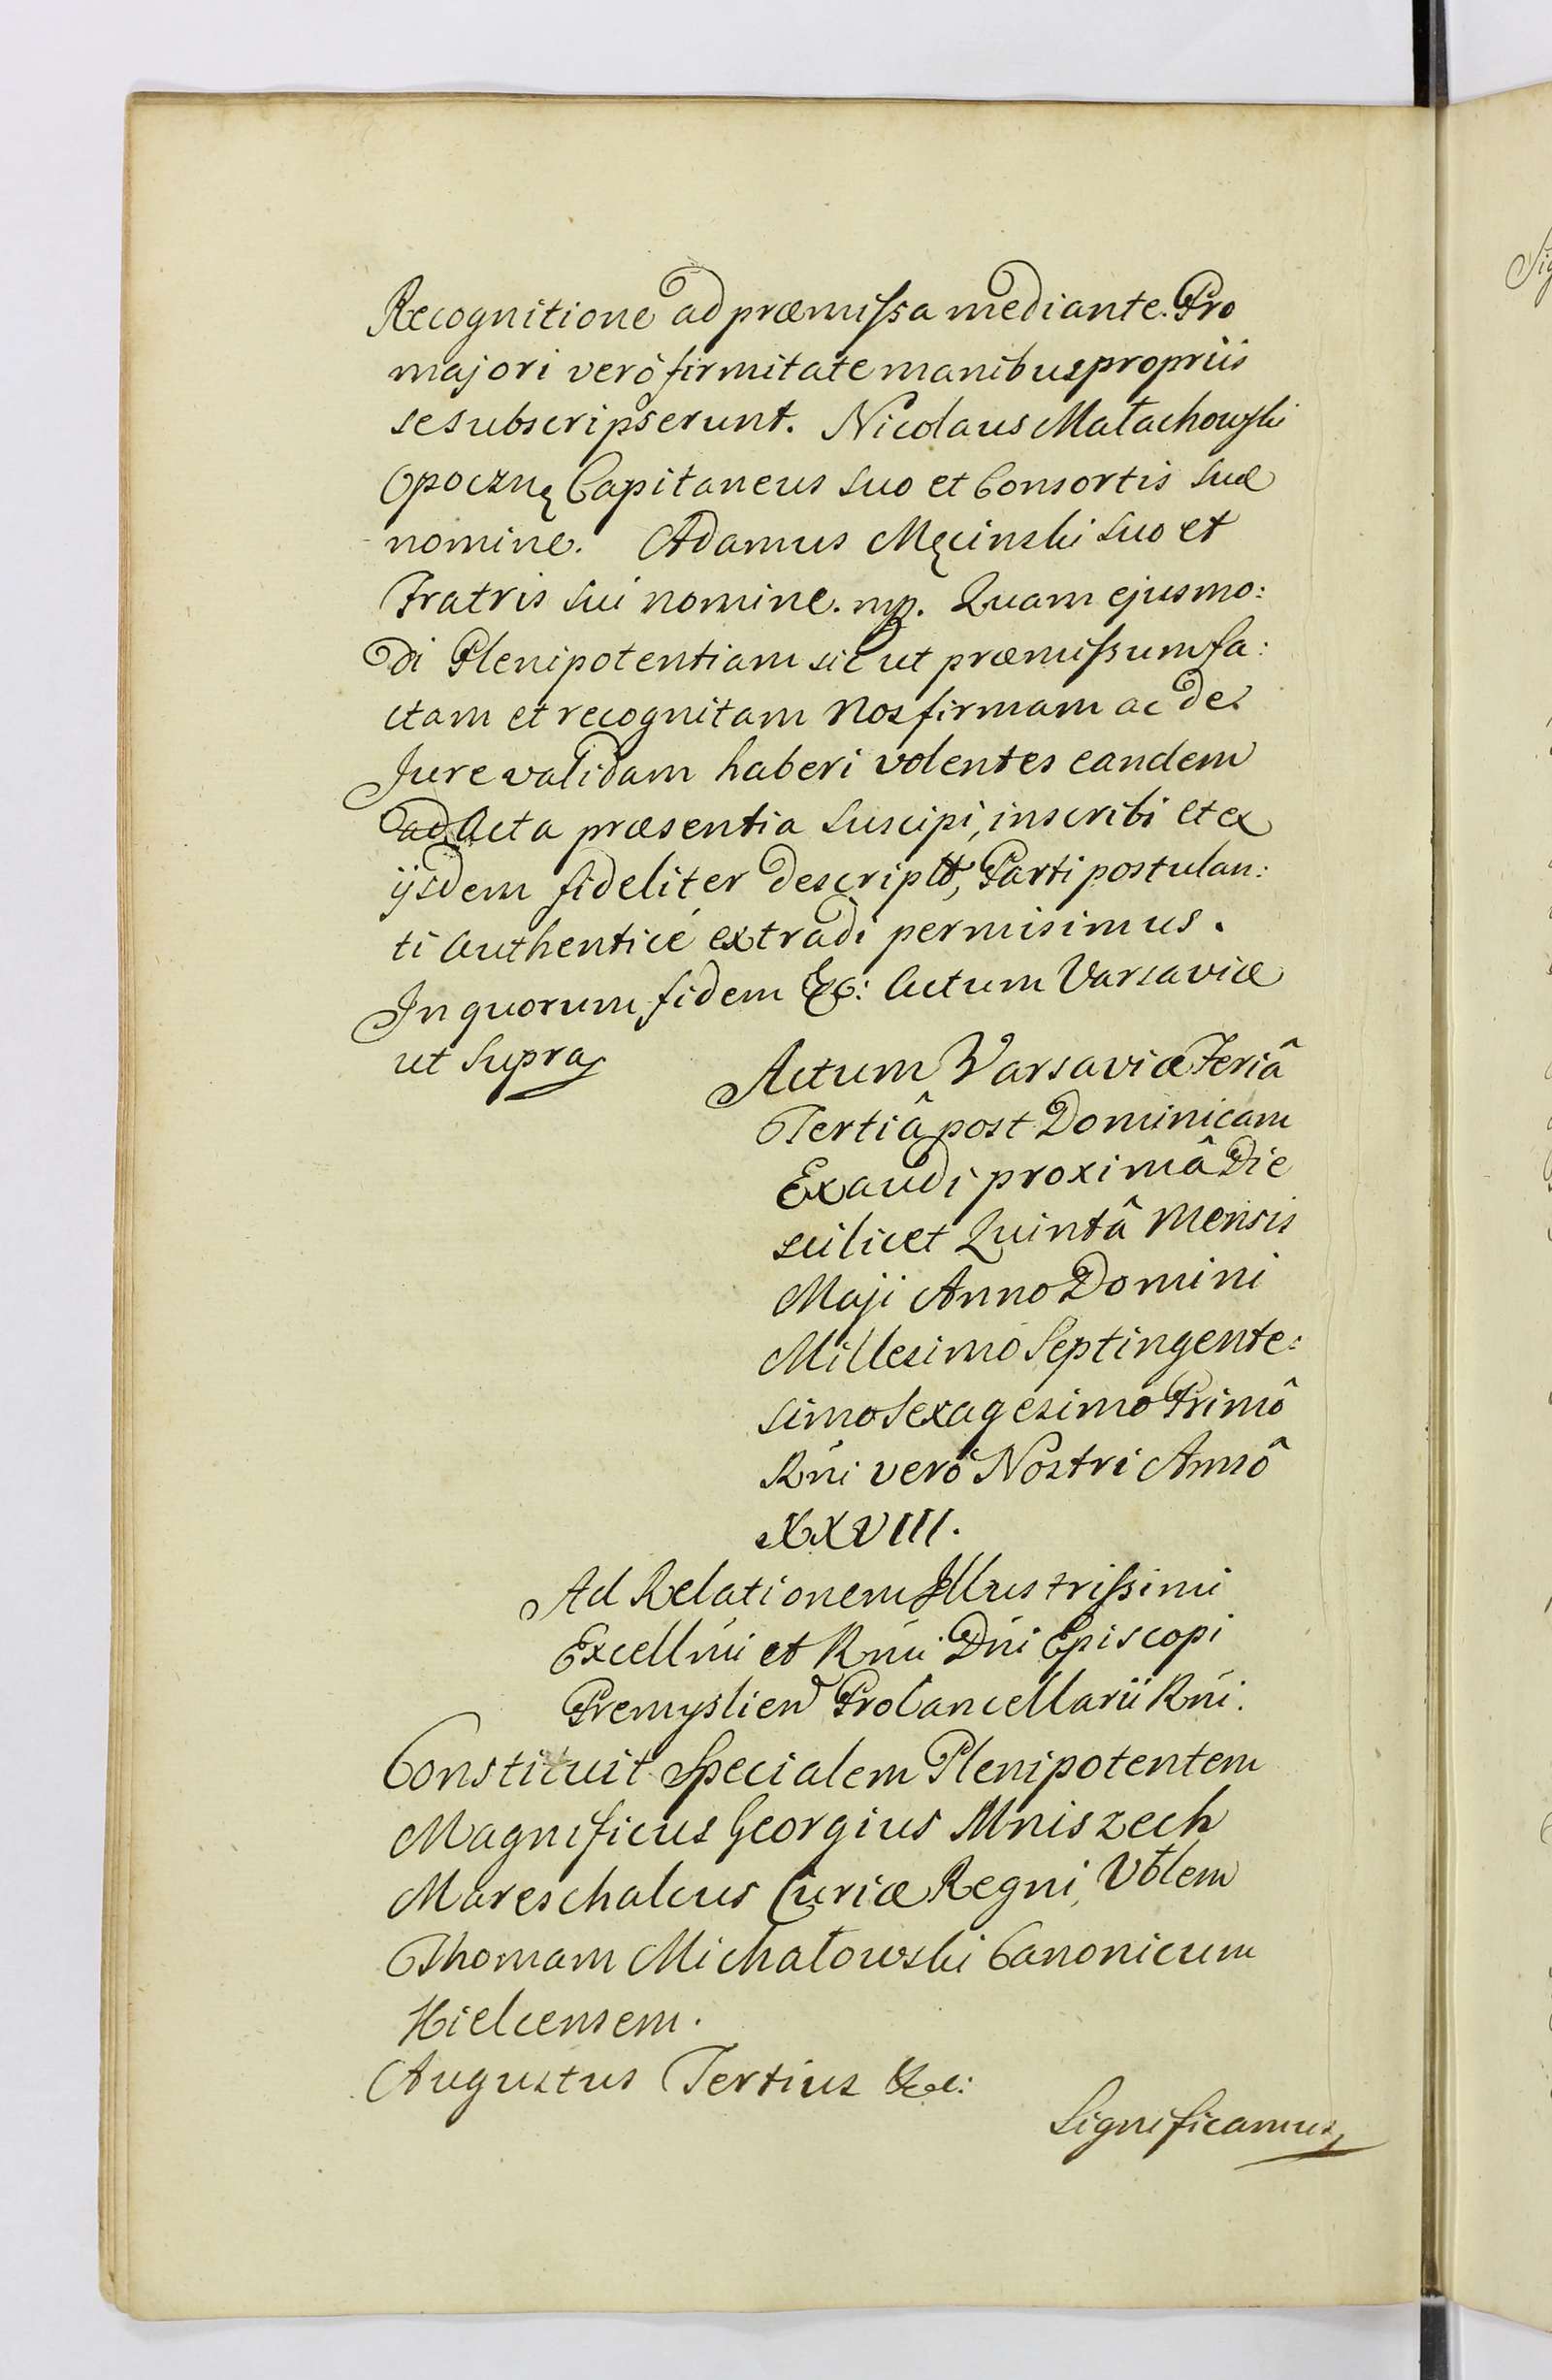 Recognitione ad præmissa mediante. Pro
majori verò firmitate manibus propriis
se subscripserunt. Nicolaus Małachowski
Opoczn Capitaneus suo et Consortis suæ
nomine. Adamus Męcinski suo et
Fratris sui nomine. mp. Quam ejusmo:
di Plenipotentiam sic ut præmissum fa:
ctam et recognitam Nos firmam ac de
Jure validam haberi volentes eandem
ad Acta præsentia suscipi, inscribi et ex
ijsdem fideliter descriptã, Parti postulan:
ti Authenticè extradi permisimus.
In quorum fidem &c: Actum Varsaviæ
ut supra
Actum Varsaviæ Feriâ
Tertiâ post Dominicam
Exaudi proximâ Die
scilicet Quintâ Mensis
Maji Anno Domini
Millesimo Septingente:
simo Sexagesimo Primô
Rni verò Nostri Annô
XXVIII.
Ad Relationem Illustrissimi
Excellmi et Rmi Dni Episcopi
Premyslien ProCancellarii Rni.
Constituit Specialem Plenipotentem
Magnificus Georgius Mniszech
Mareschalcus Curiæ Regni, Vblem
Thomam Michałowski Canonicum
Kielcensem.
Augustus Tertius &c:
Significamus
Sig